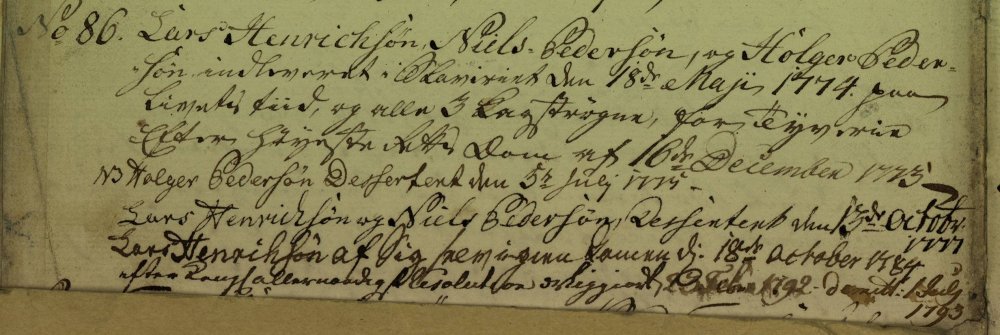 No 86. Lars Henrichsön, Niels Pedersön, og Holger Peder-
sön indleveret i Slaveriet den 18de Maji 1774. paa
Livets tiid, og alle 3 Kagströgne, for Tyverie
Efter Höyeste Retts Dom af 16de December 1773
NB Holger Pedersön Dessertert den 5te Julj 1775
Lars Henrichsön og Niels Pedersön, Dessertert den 13de Octobr.
1777
Lars Henrichsön af sig selv igien kommen d: 18de October 1784
efter Kongl allernaadigst Resolution 1792 1 Julj
1793